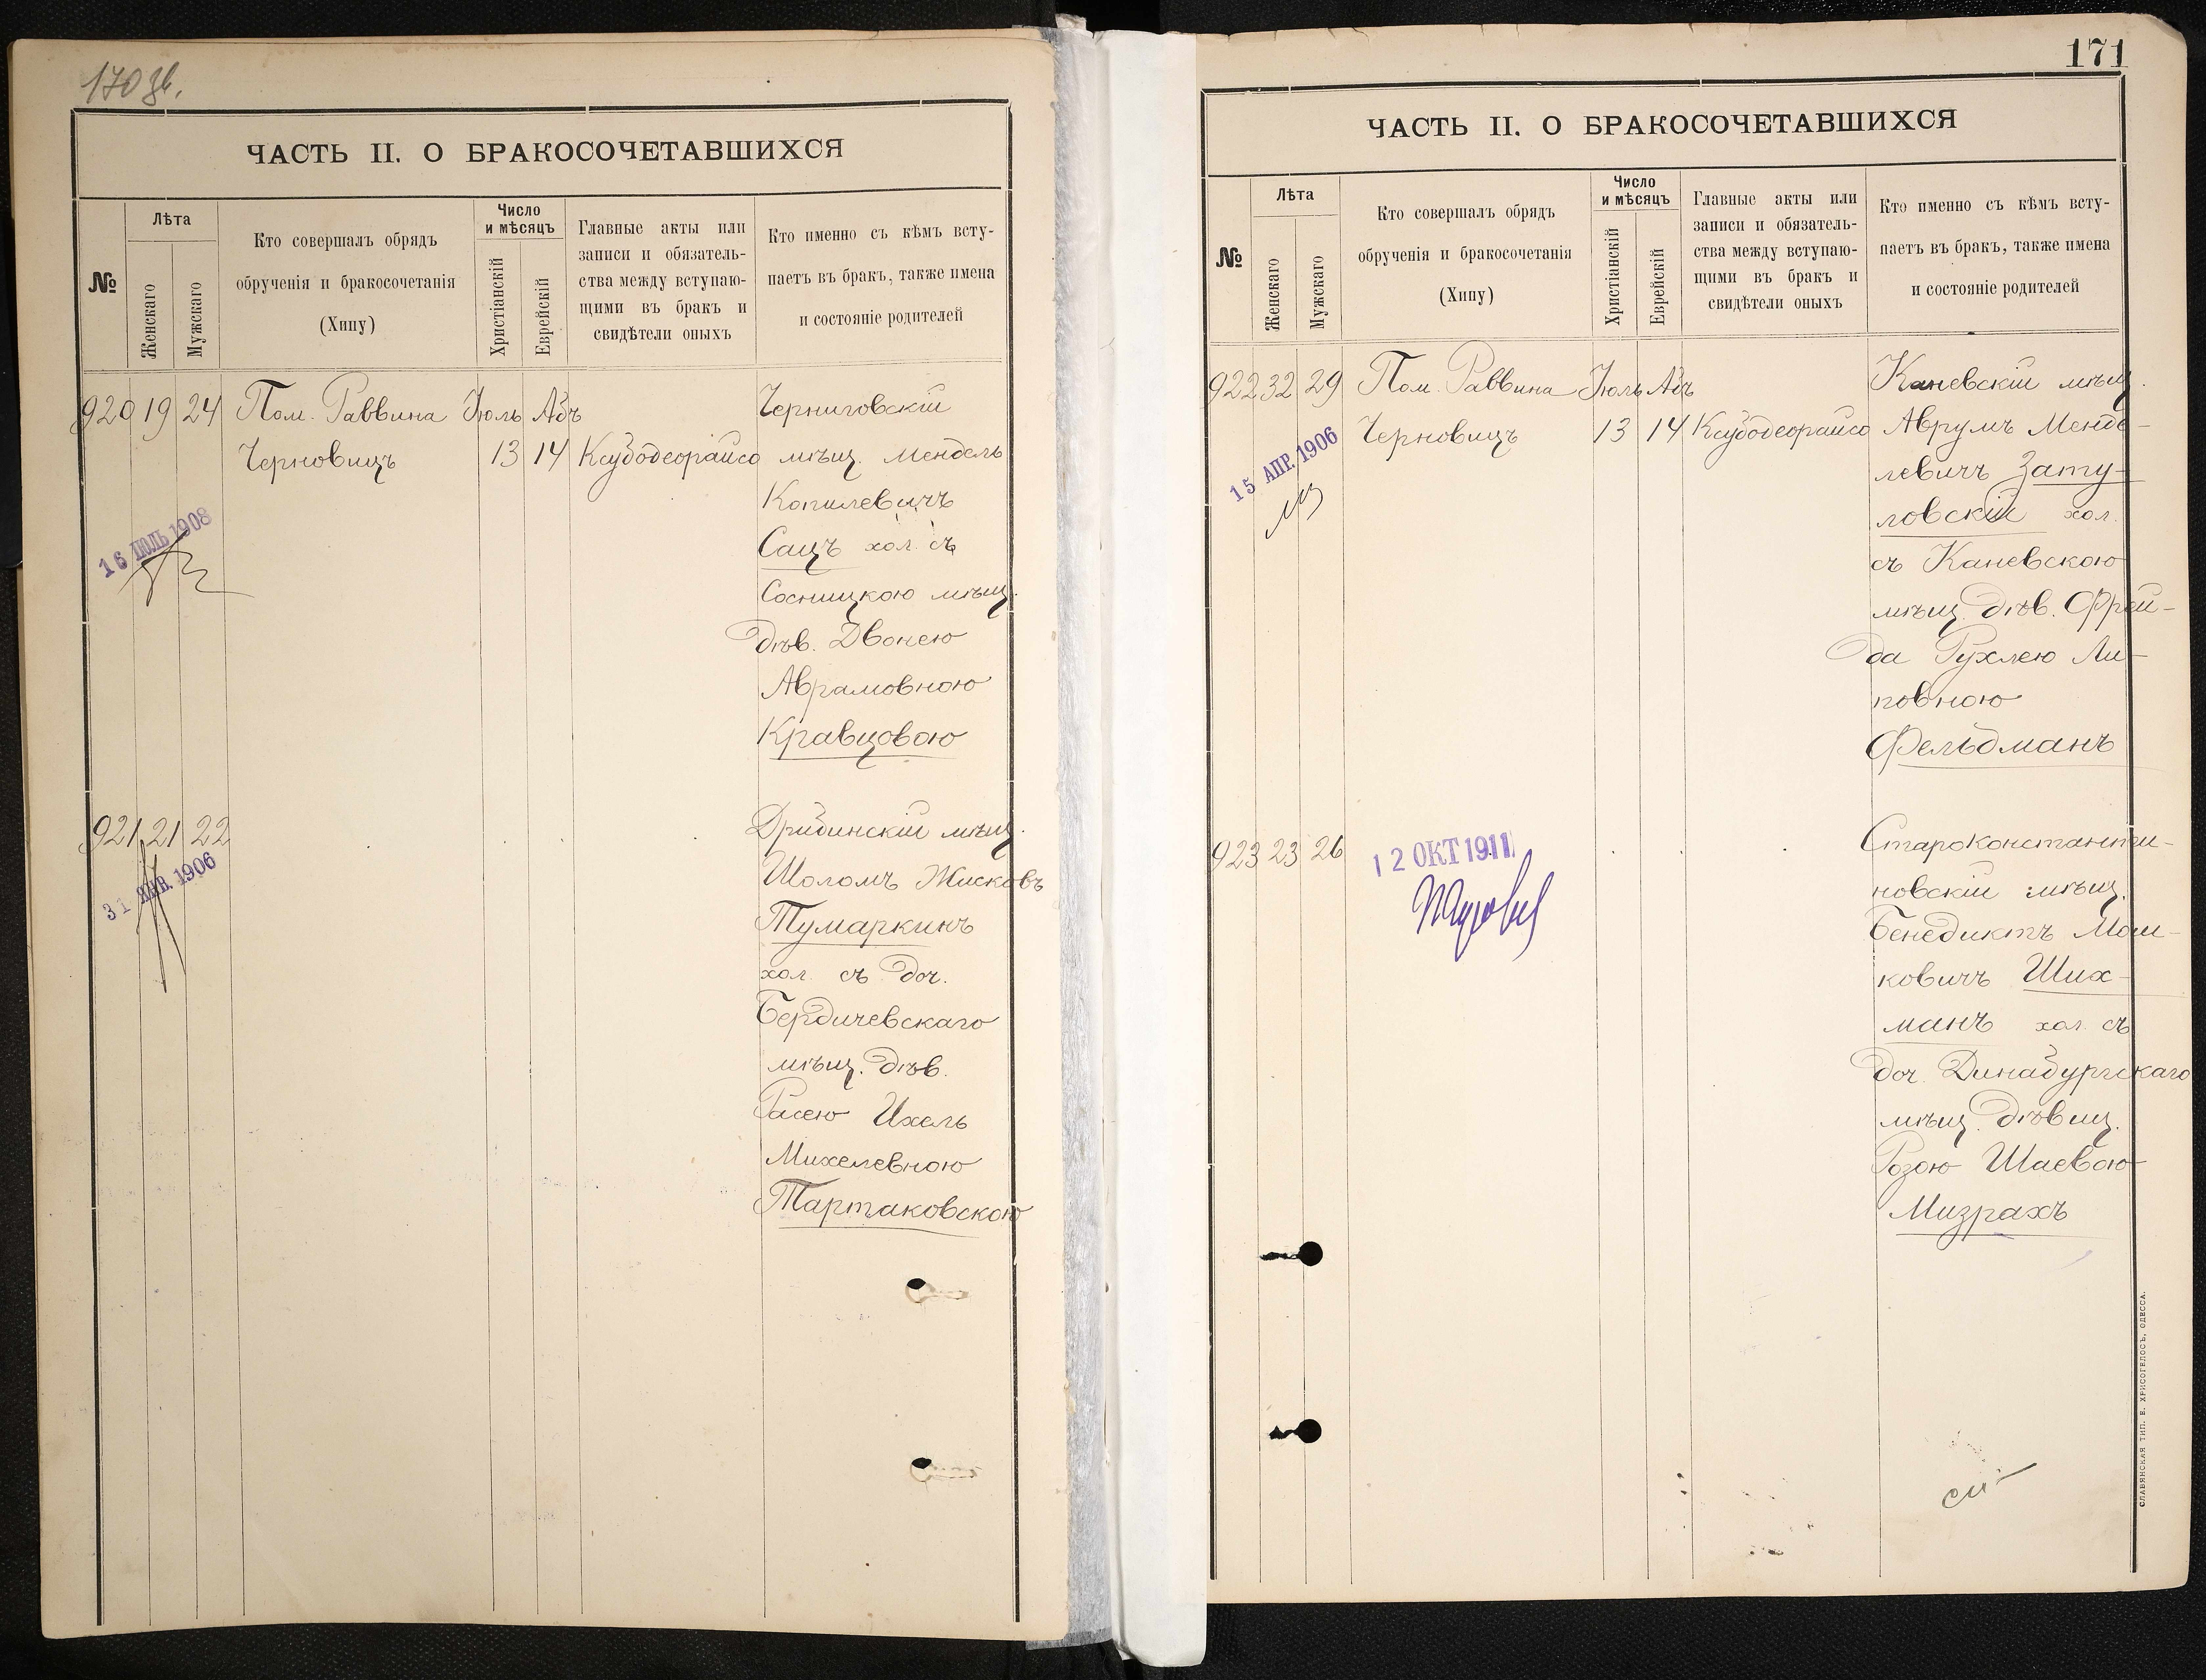 170 зв.
ЧАСТЬ II. О БРАКОСОЧЕТАВШИХСЯ
№
Лѣта
Женскаго
Мужскаго
Кто совершалъ обрядъ
обрученія и бракосочетанія
(Хипу)
Число
и мѣсяцъ
Христіанскій
Еврейскій
Главные акты или
записи и обязатель-
ства между вступаю-
щими въ бракъ и
свидѣтели оныхъ
Кто именно съ кѣмъ всту-
паетъ въ бракъ, также имена
и состояніе родителей
920 19 24 Пом. Раввина Іюль Абъ Черниговскій
Черновицъ 13 14 Ксубодеорайсо мѣщ. Мендель
Копилевичъ
16 ІЮЛЬ 1908
Сацъ хол. съ
Сосницкою мѣщ.
дѣв. Двонею
Аврамовною
Кравцовою
921 21 22 Дрибинскій мѣщ.
31 ЯНВ. 1906
Шоломъ Жисковъ
Тумаркинъ
хол. съ доч.
Бердичевскаго
мѣщ. дѣв.
Расею Ихель
Михелевною
Тартаковскою
171
ЧАСТЬ II. О БРАКОСОЧЕТАВШИХСЯ
№
Лѣта
Женскаго
Мужскаго
Кто совершалъ обрядъ
обрученія и бракосочетанія
(Хипу)
Число
и мѣсяцъ
Христіанскій
Еврейскій
Главные акты или
записи и обязатель-
ства между вступаю-
щими въ бракъ и
свидѣтели оныхъ
Кто именно съ кѣмъ всту-
паетъ въ бракъ, также имена
и состояніе родителей
922 32 29 Пом. Раввина Іюль Абъ Каневскій мѣщ.
Черновицъ 13 14 Ксубодеорайсо Аврумъ Менде-
15 АПР. 1906
левичъ Зату-
ловскій хол.
съ Каневскою
мѣщ. дѣв. Фрей-
да Рухлею Ли-
повною
Фельдманъ
923 23 26 Староконстанти-
12 ОКТ 1911
новскій мѣщ.
Бенедиктъ Мош-
ковичъ Ших-
манъ хол. съ
доч. Динабургскаго
мѣщ. дѣвиц.
Розою Шаевою
Мизрахъ
СЛАВЯНСКАЯ ТИП. Е. ХРИСОГЕЛОСЪ, ОДЕССА.